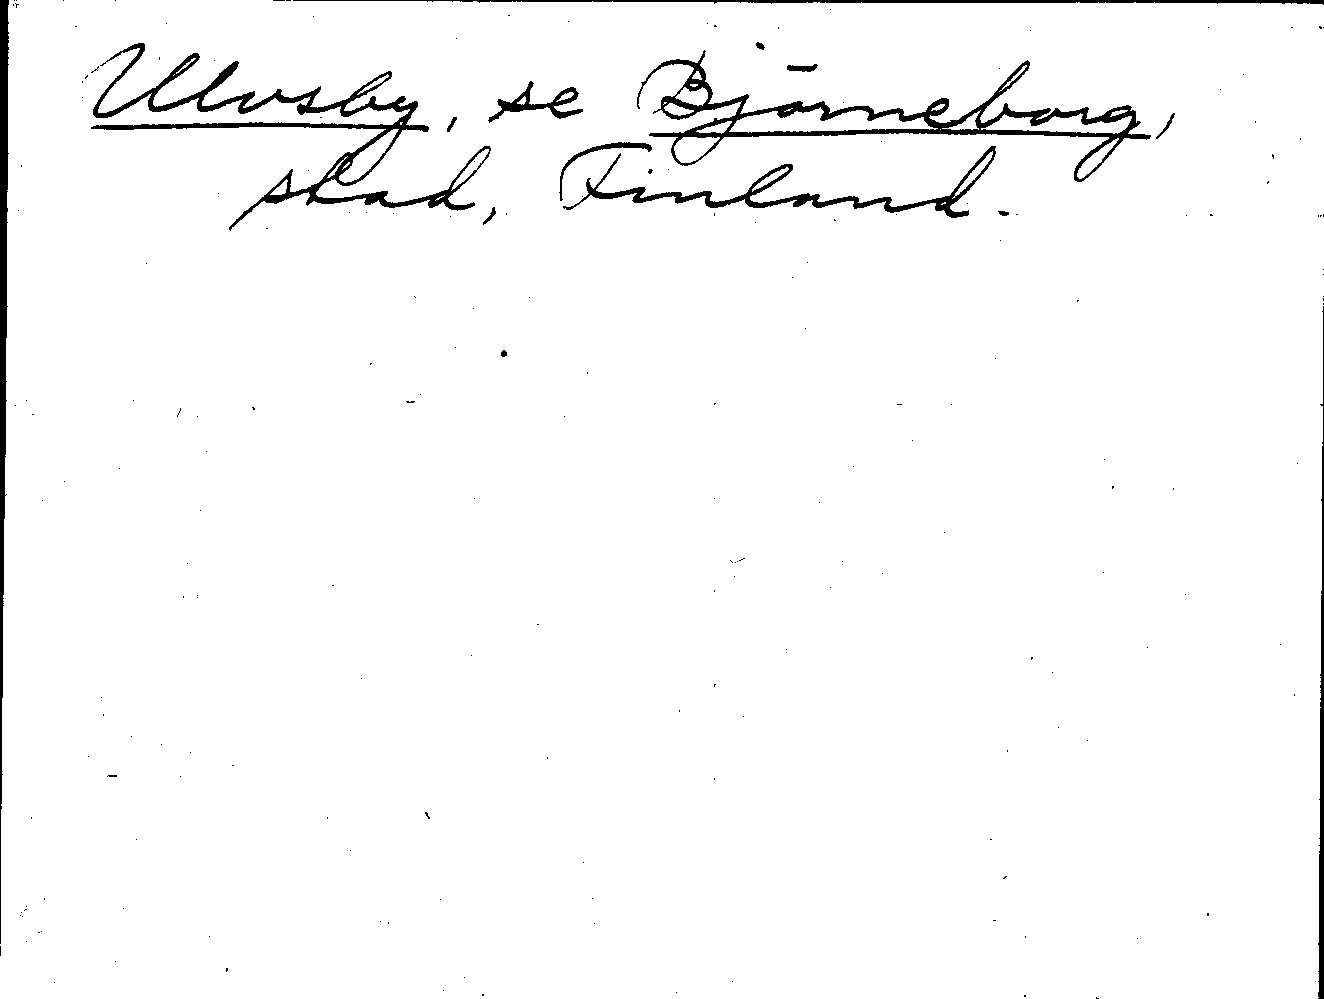 Ulvsby, se Björneborg,
stad, Finland.